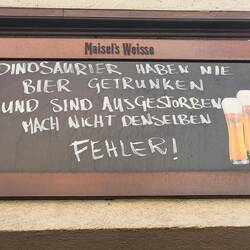 Maisel's Weisse
DINOSAURIER HABEN NIE
BIER GETRUNKEN
UND SIND AUSGESTORBEN
MACH NICHT DENSELBEN
FEHLER!